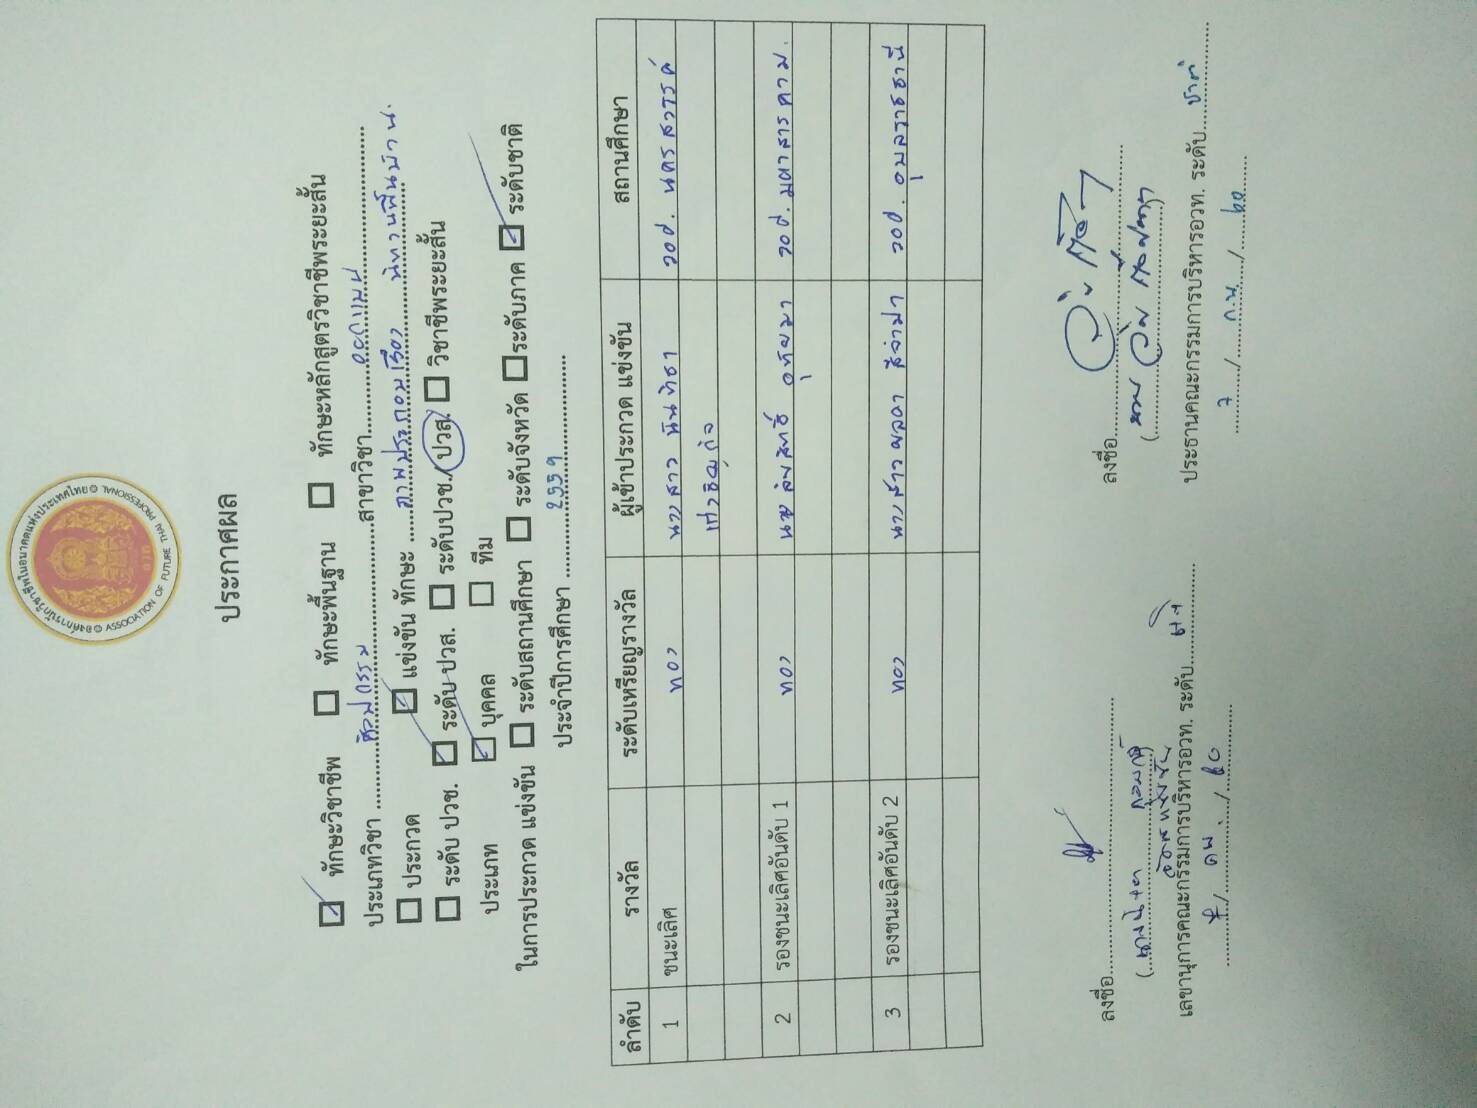 องค์การนักวิชาชีพในอนาคตแห่งประเทศไทย
อวท
ASSOCIATION OF FUTURE THAI PROFESSIONAL
ประกาศผล
ทักษะวิชาชีพ ทักษะพื้นฐาน ทักษะหลักสูตรวิชาชีพระยะสั้น
ประเภทวิชา ศิลปกรรม สาขาวิชา ออกแบบ
ประกวด แข่งขัน ทักษะ ภาพประกอบเรื่อง นิทานพื้นบ้าน
ระดับ ปวช. ระดับ ปวส. ระดับปวช./ปวส. วิชาชีพระยะสั้น
ประเภท บุคคล ทีม
ในการประกวด แข่งขัน ระดับสถานศึกษา ระดับจังหวัด ระดับภาค ระดับชาติ
ประจำปีการศึกษา 2559
ลำดับ รางวัล ระดับเหรียญรางวัล ผู้เข้าประกวด แข่งขัน สถานศึกษา
1 ชนะเลิศ ทอง นางสาว นันทิชา วอศ. นครสวรรค์
2 รองชนะเลิศอันดับ 1 ทอง นาย อุทัยมา วอศ. มหาสารคาม.
3 รองชนะเลิศอันดับ 2 ทอง นางสาว สีจำปา วอศ. อุบลราชธานี
ลงชื่อ ลงชื่อ
เลขานุการคณะกรรมการบริหารอวท. ระดับ ประธานคณะกรรมการบริหารอวท. ระดับ ชาติ
/ กพ. / 60 7 / ก.พ. / 60